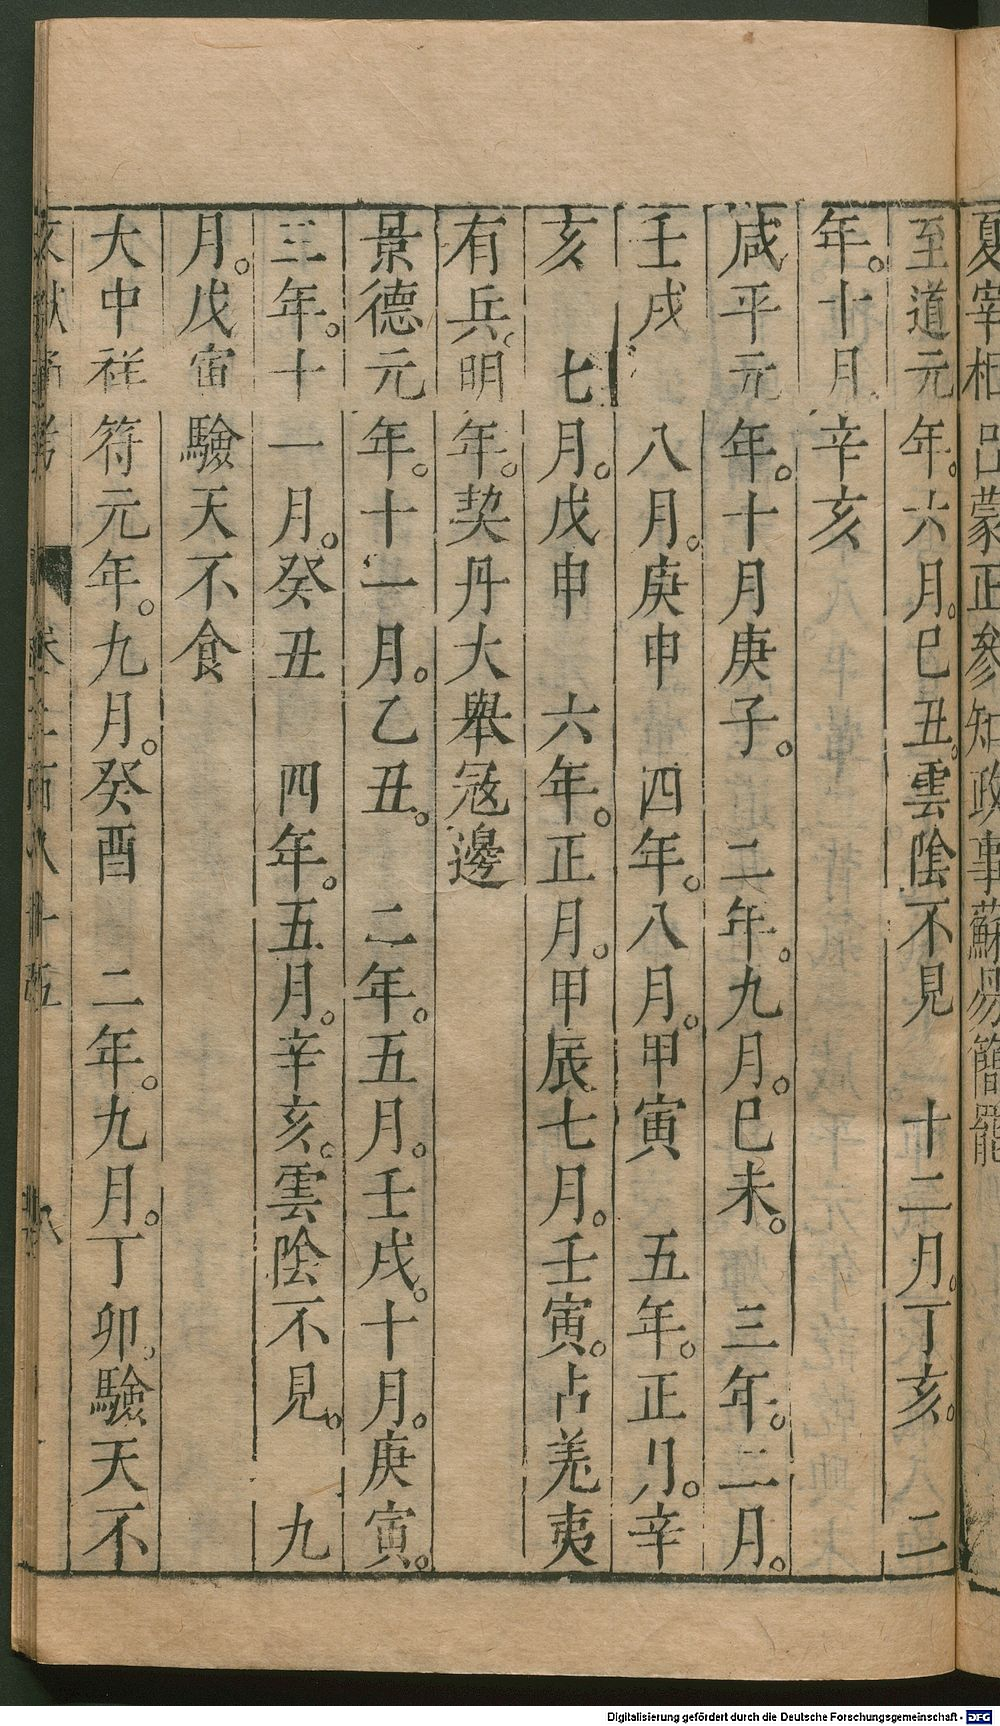 夏宰相呂蒙正參知政事蘇易簡罷
至道元年。六月。巳丑。雲陰不見　十二月。丁亥。　二
年。十月辛亥
咸平元年。十月庚子。　二年。九月。巳未。　三年。二月。
壬戌　八月。庚申　四年。八月。甲寅　五年。正月。辛
亥　七月。戊申　六年。正月。甲辰七月。壬寅。占羌夷
有兵。明年。契丹大舉寇邊
景德元年。十一月。乙丑。　二年。五月。壬戌。十月。庚寅。
三年。十一月。癸丑　四年。五月。辛亥。雲陰不見。　九
月。戊寅驗天不食
大中祥符元年。九月。癸酉　二年。九月。丁卯。驗天不
Digitalisierung gefördert durch die Deutsche Forschungsgemeinschaft - DFG